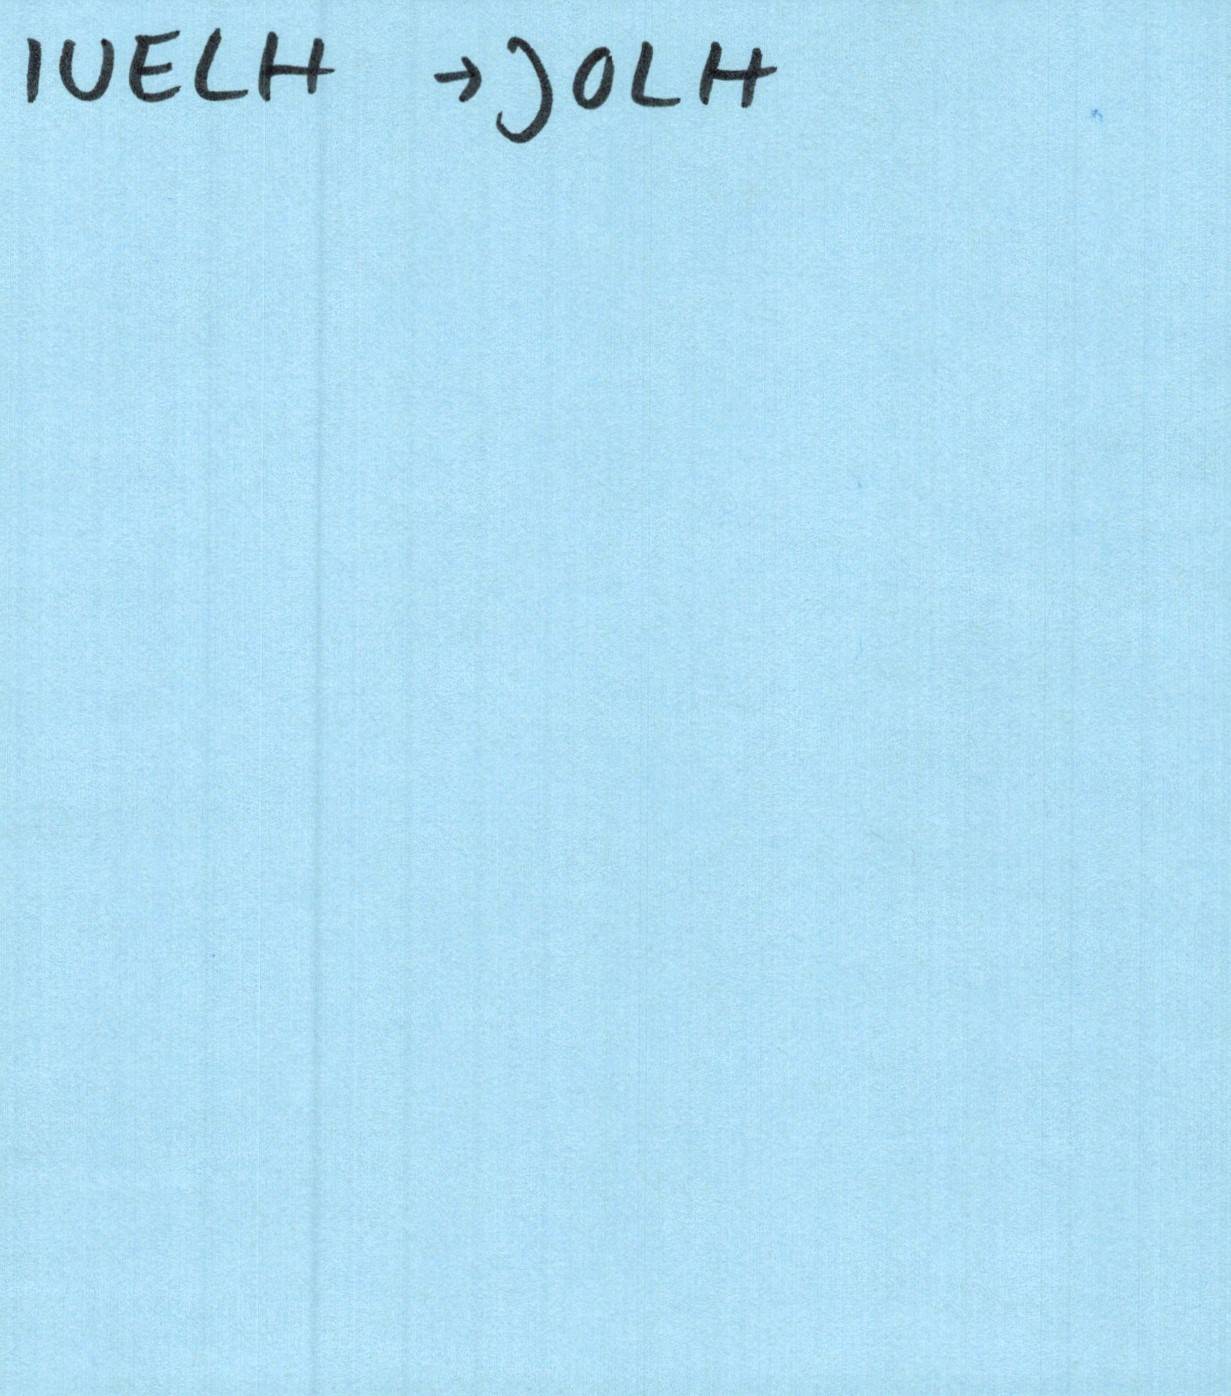 IUELH → JOLH